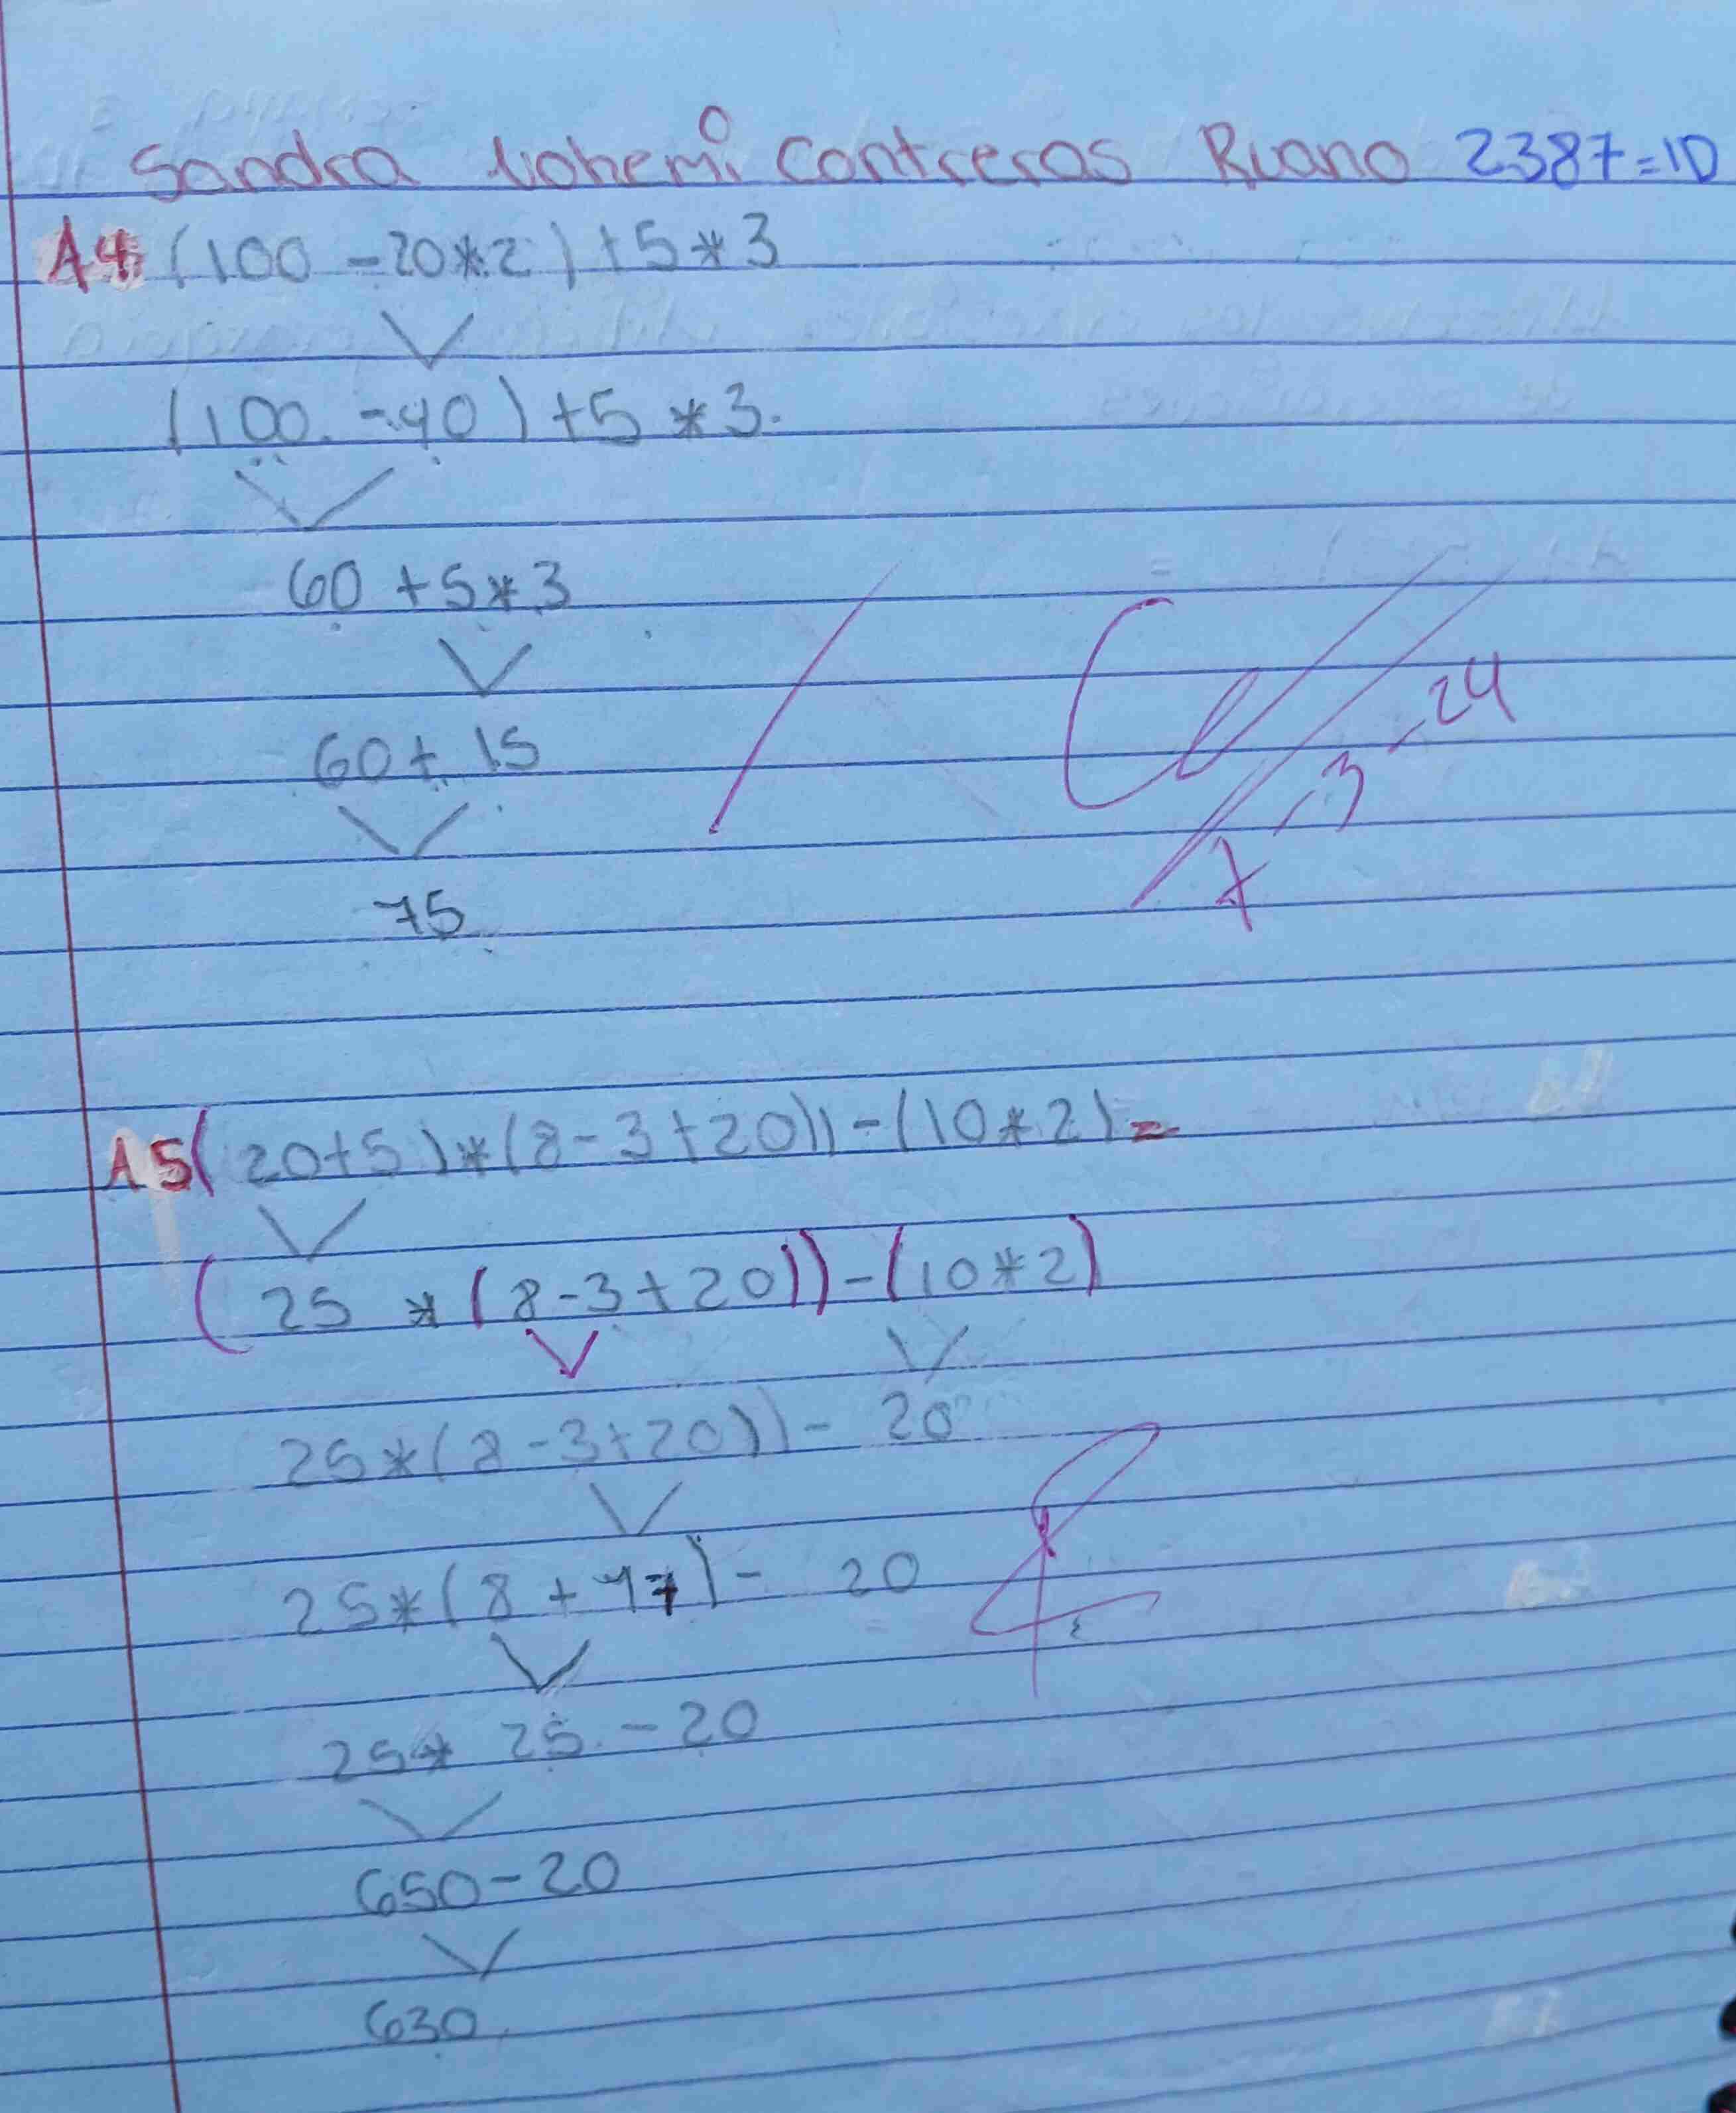 Sandra Nohemi Contreras Ruano 2387=ID
A4 (100 -20*2)+5*3
(100 -40)+5*3
60+5*3
60+15
75
7-3-24
A5 (20+5)*(8-3+20))-(10*2)=
(25 *(8-3+20))-(10*2)
25*(8-3+20))- 20
25*(8+17)- 20
25* 25 -20
650-20
630